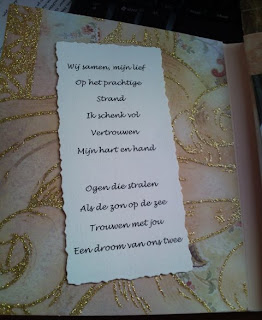 Wij samen, mijn lief
Op het prachtige
Strand
Ik schenk vol
Vertrouwen
Mijn hart en hand
Ogen die stralen
Als de zon op de zee
Trouwen met jou
Een droom van ons twee